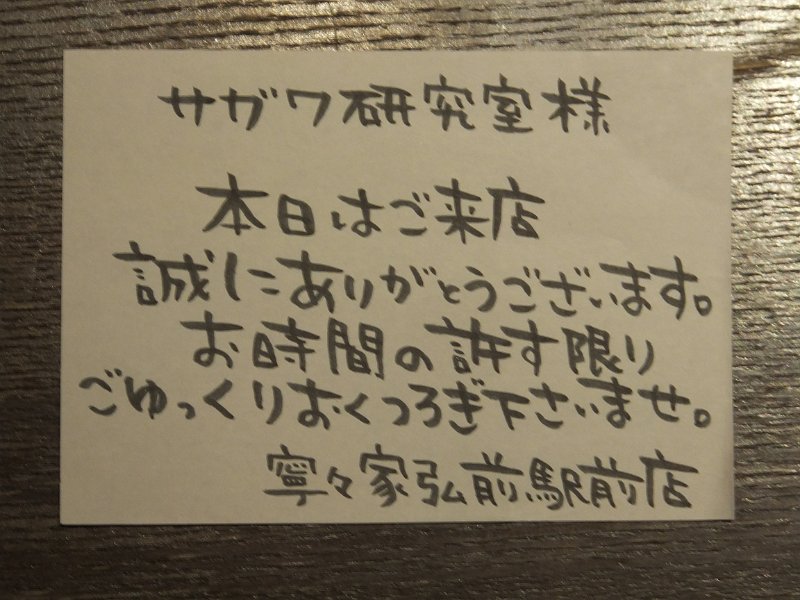 サガワ研究室様
本日はご来店
誠にありがとうございます。
お時間の許す限り
ごゆっくりおくつろぎ下さいませ。
寧々家弘前駅前店